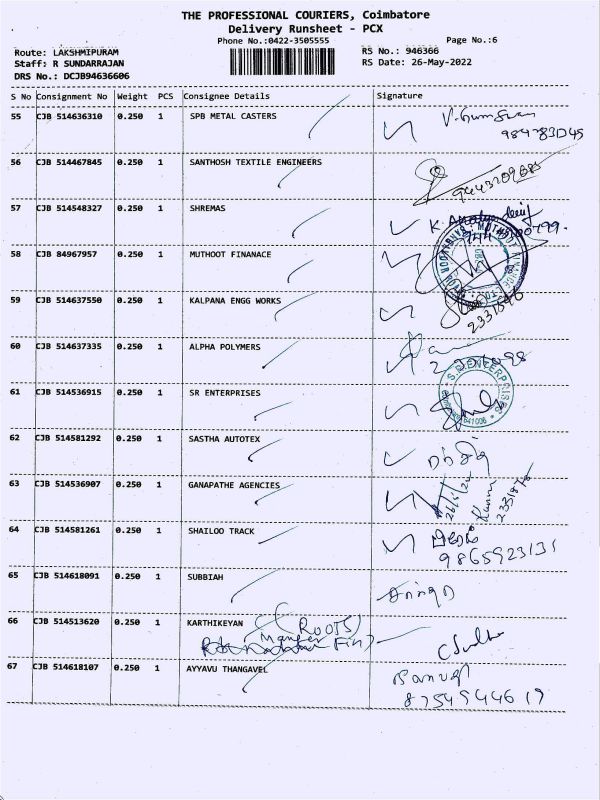 THE PROFESSIONAL COURIERS, Coimbatore
Delivery Runsheet - PCX
Phone No.:0422-3505555 Page No.:6
Route: LAKSHMIPURAM RS No.: 946366
Staff: R SUNDARRAJAN RS Date: 26-May-2022
DRS No.: DCJB94636606
S No Consignment No Weight PCS Consignee Details Signature
55 CJB 514636310 0.250 1 SPB METAL CASTERS
56 CJB 514467845 0.250 1 SANTHOSH TEXTILE ENGINEERS
57 CJB 514548327 0.250 1 SHREMAS
58 CJB 84967957 0.250 1 MUTHOOT FINANACE
59 CJB 514637550 0.250 1 KALPANA ENGG WORKS
2331896
60 CJB 514637335 0.250 1 ALPHA POLYMERS
61 CJB 514536915 0.250 1 SR ENTERPRISES
S.R.ENTERPRISES
62 CJB 514581292 0.250 1 SASTHA AUTOTEX
63 CJB 514536907 0.250 1 GANAPATHE AGENCIES
64 CJB 514581261 0.250 1 SHAILOO TRACK
9865923131
65 CJB 514618091 0.250 1 SUBBIAH
66 CJB 514513620 0.250 1 KARTHIKEYAN (ROOTS)
67 CJB 514618107 0.250 1 AYYAVU THANGAVEL
8754944619